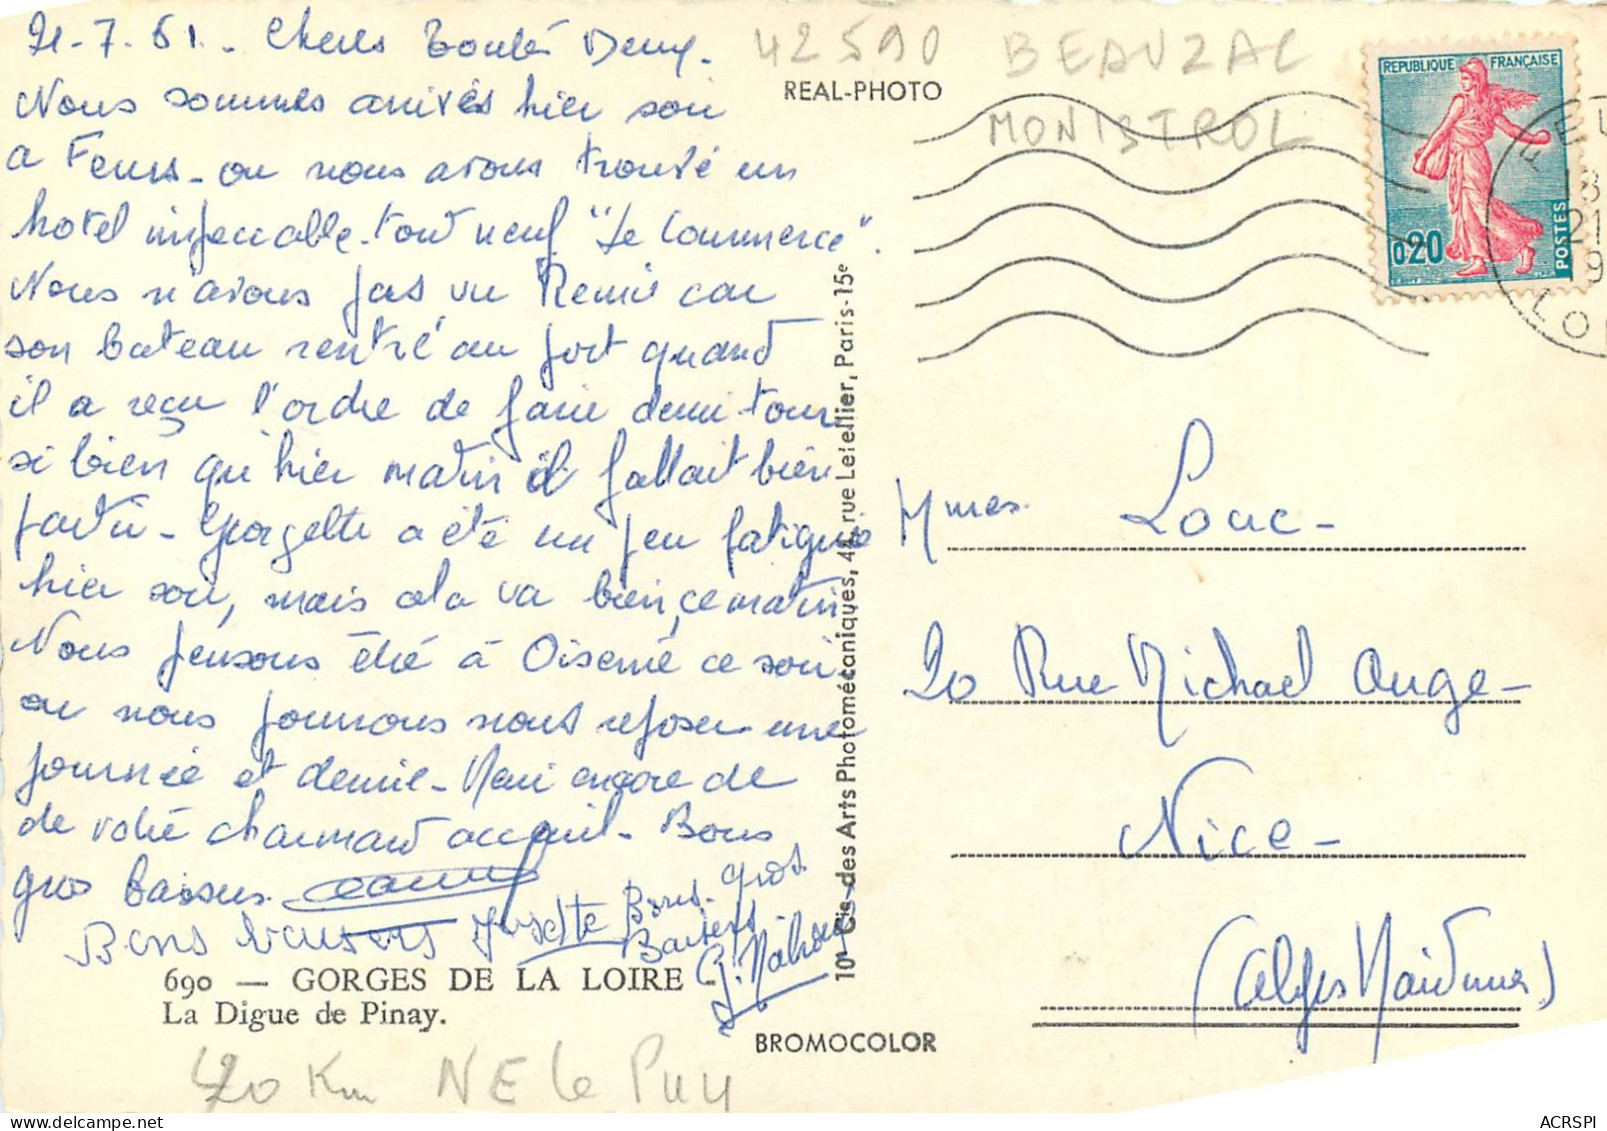 21-7-61- Chères Toutes Deux.
Nous sommes arrivés hier soir
a Feurs - ou nous avons trouvé un
hotel impeccable - tout neuf "Le Commerce".
Nous n'avons pas vu Rémi car
son bateau rentré au port quand
il a reçu l'ordre de faire demi-tour
si bien qu'hier matin il fallait bien
partir - Georgette a été un peu fatiguée
hier soir, mais cela va bien, ce matin
Nous pensons être à ce soir
ou nous pourrons nous reposer une
journée et demie - Merci encore de
de votre charmant accueil - Bons
gros baisers.
Bons baisers Josette
Bons gros
Baisers
690 — GORGES DE LA LOIRE -
La Digue de Pinay.
BROMOCOLOR
40 Km NE le Puy
42590
BEAUZAC
MONISTROL
REAL-PHOTO
10e Cie des Arts Photomécaniques, 44, rue Letellier, Paris-15e
REPUBLIQUE FRANÇAISE
0,20
POSTES
FEU
13
21
9
LO
Mmes Louc -
20 Rue Michael Ange -
Nice -
(Alpes Maritimes)
ACRSPI